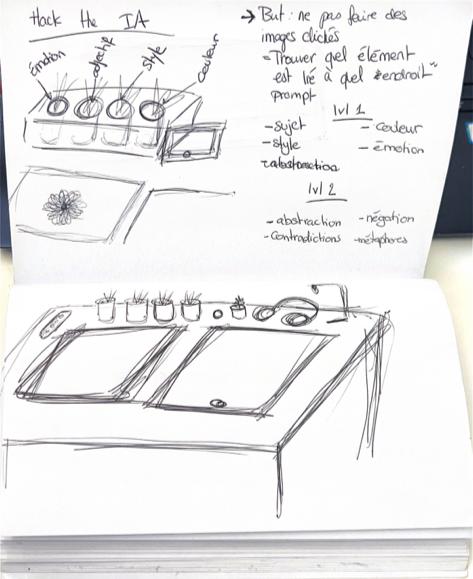 Hack the IA
Émotion
adjectif
style
couleur
→ But: ne pas faire des
images clichés
"Trouver quel élément
est lié à quel endroit"
prompt
lvl 1
- sujet
- couleur
- style
- émotion
lvl 2
- abstraction
- négation
- Contradictions
- métaphores